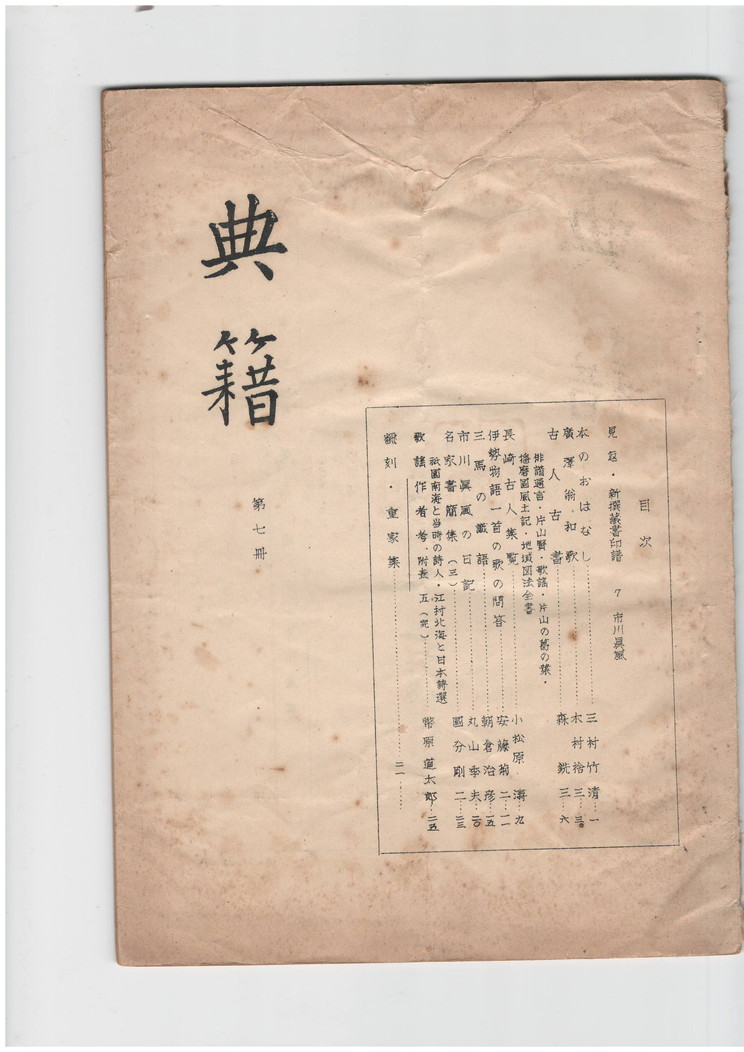 典籍
第七冊
目次
見返・新撰篆書印譜 7 市川眞風
本のおはなし…………三村竹清…一
廣澤翁和歌…………木村捨三…三
古人古書…………森銑三…六
俳諧通言・片山賢・歌謡・片山の葛の葉・
播磨國風土記・地域図法全書
長崎古人集覧…………小松原濤…九
伊勢物語一首の歌の問答…………安藤菊二…一一
三馬の識語…………朝倉治彦…一五
市川眞風の日記…………丸山季夫…二〇
名家書簡集(三)…………國分剛二…二三
祇園南海と当時の詩人・江村北海と日本詩選
歌謡作者考・附表 五(完)…………幣原道太郎…二五
翻刻・童家集…………二一……